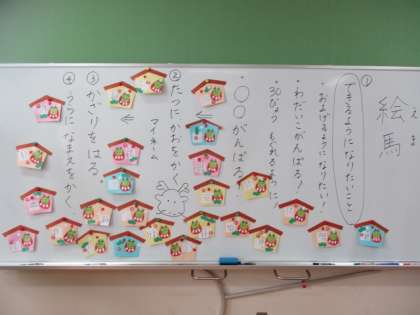 絵馬
えま
① できるようになりたいこと
およげるようになりたい!
・わだいこがんばる!
・30びょう もぐれるように。
・〇〇がんばる。
② たつにかおをかく。
マイネーム
③ かざりをはる。
④ うらになまえをかく。